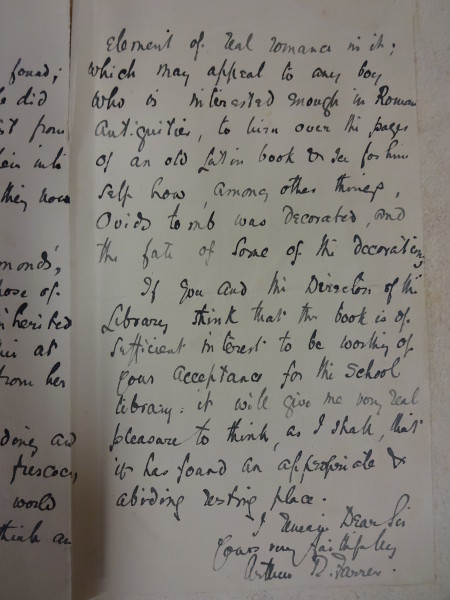 found;
did
from
into
they now
monds,
those of
inherited
at
from her
and
frescoes,
world
think an
Element of real romance in it;
which may appeal to any boy
who is interested enough in Roman
Antiquities, to turn over the pages
of an old Latin book & see for him
self how, among other things,
Ovids tomb was decorated, and
the fate of some of the decorations
If you and the Directors of the
Library think that the book is of
sufficient interest to be worthy of
your acceptance for the School
library: it will give me very real
pleasure to think, as I shall, that
it has found an appropriate &
abiding resting place.
I remain Dear Sir
Yours very faithfully
Arthur D. Farrer.